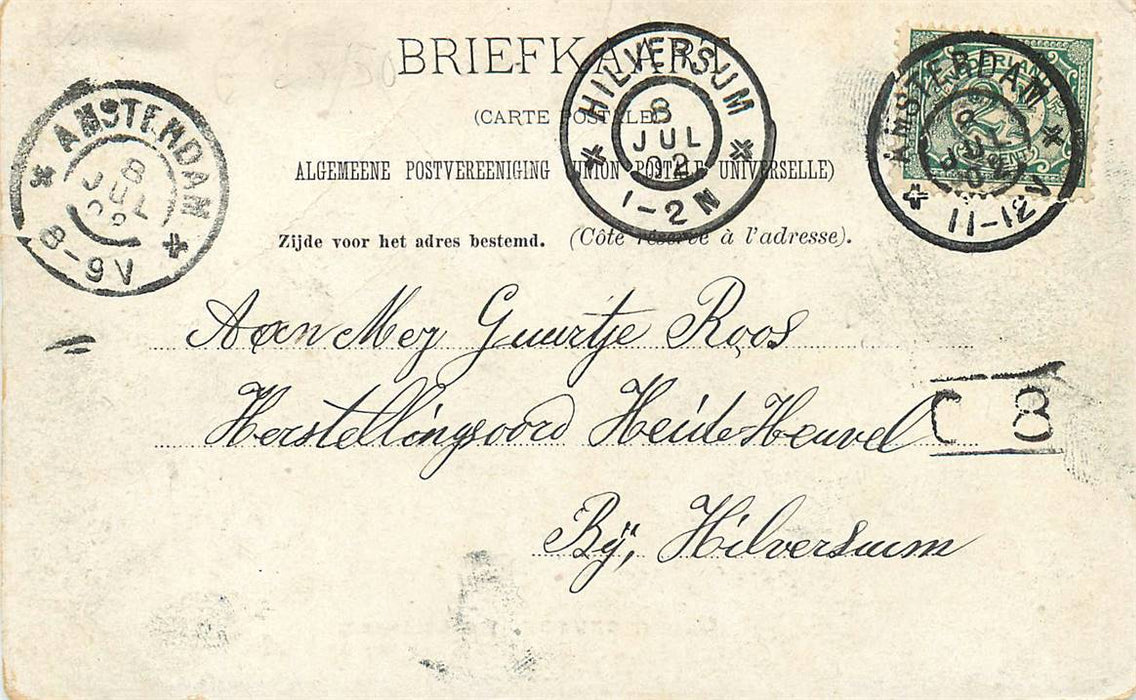 BRIEFKAART
(CARTE POSTALE)
ALGEMEENE POSTVEREENIGING (UNION POSTALE UNIVERSELLE)
Zijde voor het adres bestemd. (Côté réservé à l'adresse).
AMSTERDAM
8
JUL
02
8-9V
HILVERSUM
8
JUL
02
1-2N
NEDERLAND
2½
CENT
AMSTERDAM
8
JUL
02
11-12V
Aan Mej Guurtje Roos
Herstellingsoord Heide-Heuvel
C 8
Bÿ, Hilversum